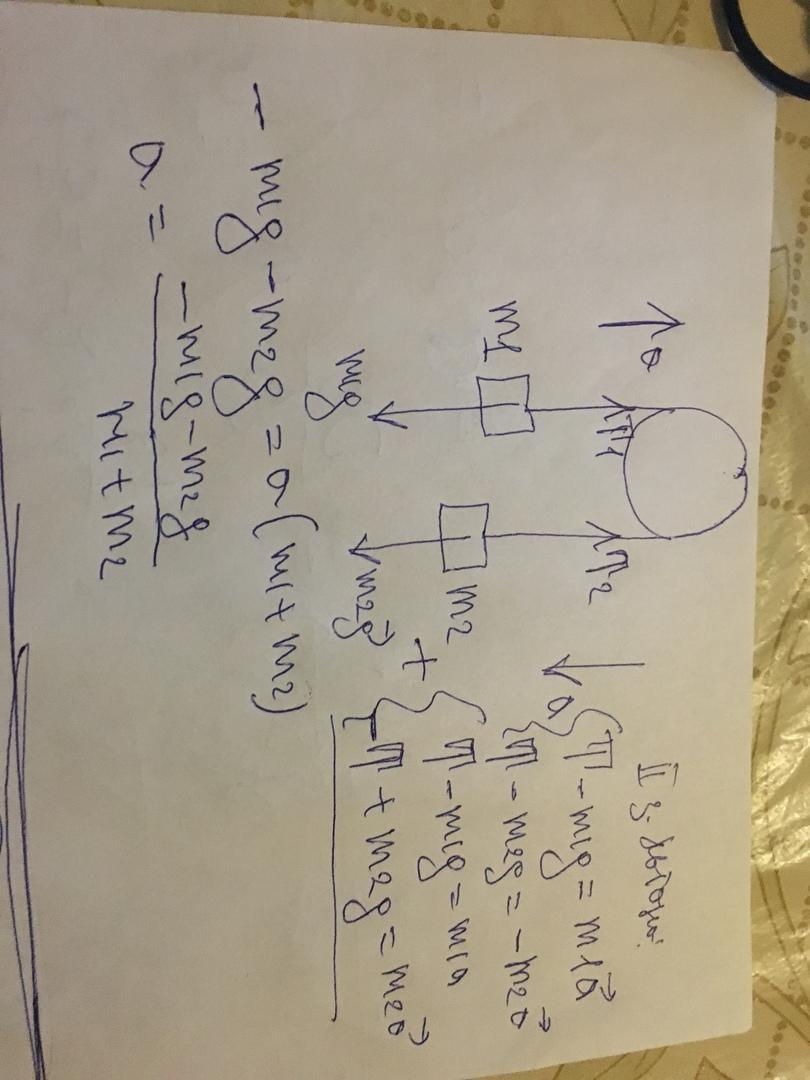 II з. Ньютона:
a
T1 T2
a
m1 m2
m1g m2g⃗
T1 - m1g = m1a⃗
T1 - m2g = -m2a⃗
+
T1 - m1g = m1a
-T1 + m2g = m2a⃗
- m1g - m2g = a(m1 + m2)
a = -m1g - m2g
m1 + m2